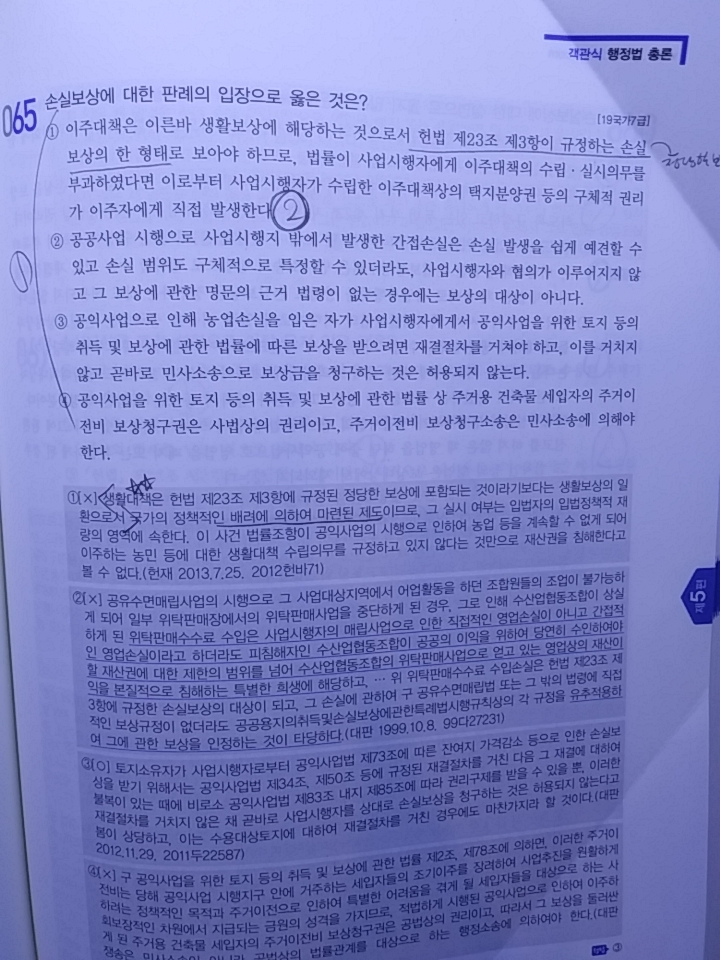 객관식 행정법 총론
065 손실보상에 대한 판례의 입장으로 옳은 것은?
[19국가7급]
① 이주대책은 이른바 생활보상에 해당하는 것으로서 헌법 제23조 제3항이 규정하는 손실
보상의 한 형태로 보아야 하므로, 법률이 사업시행자에게 이주대책의 수립·실시의무를
부과하였다면 이로부터 사업시행자가 수립한 이주대책상의 택지분양권 등의 구체적 권리
가 이주자에게 직접 발생한다. ②
② 공공사업 시행으로 사업시행지 밖에서 발생한 간접손실은 손실 발생을 쉽게 예견할 수
①
있고 손실 범위도 구체적으로 특정할 수 있더라도, 사업시행자와 협의가 이루어지지 않
고 그 보상에 관한 명문의 근거 법령이 없는 경우에는 보상의 대상이 아니다.
③ 공익사업으로 인해 농업손실을 입은 자가 사업시행자에게서 공익사업을 위한 토지 등의
취득 및 보상에 관한 법률에 따른 보상을 받으려면 재결절차를 거쳐야 하고, 이를 거치지
않고 곧바로 민사소송으로 보상금을 청구하는 것은 허용되지 않는다.
④ 공익사업을 위한 토지 등의 취득 및 보상에 관한 법률 상 주거용 건축물 세입자의 주거이
전비 보상청구권은 사법상의 권리이고, 주거이전비 보상청구소송은 민사소송에 의해야
한다.
①[×] 생활대책은 헌법 제23조 제3항에 규정된 정당한 보상에 포함되는 것이라기보다는 생활보상의 일
환으로서 국가의 정책적인 배려에 의하여 마련된 제도이므로, 그 실시 여부는 입법자의 입법정책적 재
량의 영역에 속한다. 이 사건 법률조항이 공익사업의 시행으로 인하여 농업 등을 계속할 수 없게 되어
이주하는 농민 등에 대한 생활대책 수립의무를 규정하고 있지 않다는 것만으로 재산권을 침해한다고
볼 수 없다.(헌재 2013.7.25. 2012헌바71)
②[×] 공유수면매립사업의 시행으로 그 사업대상지역에서 어업활동을 하던 조합원들의 조업이 불가능하
게 되어 일부 위탁판매장에서의 위탁판매사업을 중단하게 된 경우, 그로 인해 수산업협동조합이 상실
하게 된 위탁판매수수료 수입은 사업시행자의 매립사업으로 인한 직접적인 영업손실이 아니고 간접적
인 영업손실이라고 하더라도 피침해자인 수산업협동조합이 공공의 이익을 위하여 당연히 수인하여야
할 재산권에 대한 제한의 범위를 넘어 수산업협동조합의 위탁판매사업으로 얻고 있는 영업상의 재산이
익을 본질적으로 침해하는 특별한 희생에 해당하고, … 위 위탁판매수수료 수입손실은 헌법 제23조 제
3항에 규정한 손실보상의 대상이 되고, 그 손실에 관하여 구 공유수면매립법 또는 그 밖의 법령에 직접
적인 보상규정이 없더라도 공공용지의취득및손실보상에관한특례법시행규칙상의 각 규정을 유추적용하
여 그에 관한 보상을 인정하는 것이 타당하다.(대판 1999.10.8. 99다27231)
③[○] 토지소유자가 사업시행자로부터 공익사업법 제73조에 따른 잔여지 가격감소 등으로 인한 손실보
상을 받기 위해서는 공익사업법 제34조, 제50조 등에 규정된 재결절차를 거친 다음 그 재결에 대하여
불복이 있는 때에 비로소 공익사업법 제83조 내지 제85조에 따라 권리구제를 받을 수 있을 뿐, 이러한
재결절차를 거치지 않은 채 곧바로 사업시행자를 상대로 손실보상을 청구하는 것은 허용되지 않는다고
봄이 상당하고, 이는 수용대상토지에 대하여 재결절차를 거친 경우에도 마찬가지라 할 것이다.(대판
2012.11.29. 2011두22587)
④[×] 구 공익사업을 위한 토지 등의 취득 및 보상에 관한 법률 제2조, 제78조에 의하면, 이러한 주거이
전비는 당해 공익사업 시행지구 안에 거주하는 세입자들의 조기이주를 장려하여 사업추진을 원활하게
하려는 정책적인 목적과 주거이전으로 인하여 특별한 어려움을 겪게 될 세입자들을 대상으로 하는 사
회보장적인 차원에서 지급되는 금원의 성격을 가지므로, 적법하게 시행된 공익사업으로 인하여 이주하
게 된 주거용 건축물 세입자의 주거이전비 보상청구권은 공법상의 권리이고, 따라서 그 보상을 둘러싼
쟁송은 민사소송이 아니라 공법상의 법률관계를 대상으로 하는 행정소송에 의하여야 한다.(대판
제5편
정답 ③